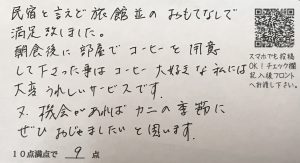 民宿と言えど旅館並のおもてなしで
満足致しました。
朝食後に部屋でコーヒーを用意
して下さった事はコーヒー大好きな私には
大変うれしいサービスです。
又、機会があればカニの季節に
ぜひおじゃましたいと思います。
10点満点で 9 点
スマホでも投稿
OK!チェック欄
記入後フロント
へお渡し下さい。